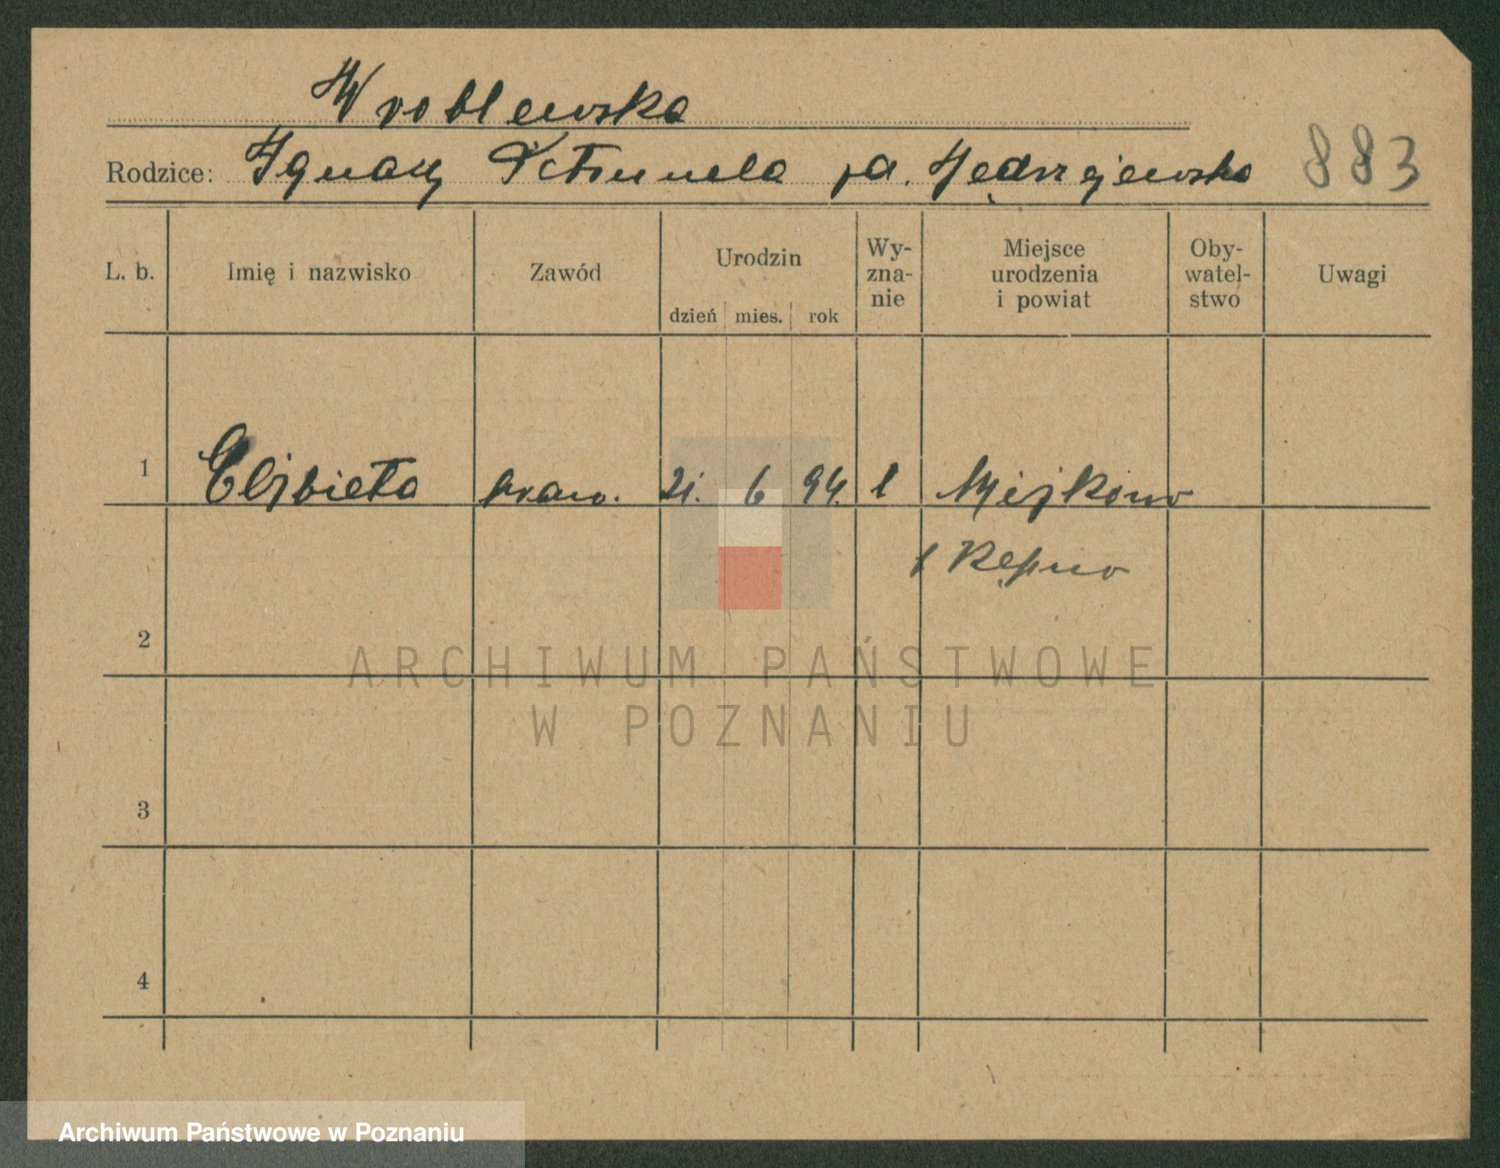 Wroblewska
Rodzice: Ignacy Petronela za. Jędrzejewska 883
L. b. Imię i nazwisko Zawód Urodzin dzień mies. rok Wy-zna-nie Miejsce urodzenia i powiat Oby-watel-stwo Uwagi
1 Elzbieta 21. 6 94.
Kępno
2
ARCHIWUM PAŃSTWOWE
W POZNANIU
3
4
Archiwum Państwowe w Poznaniu